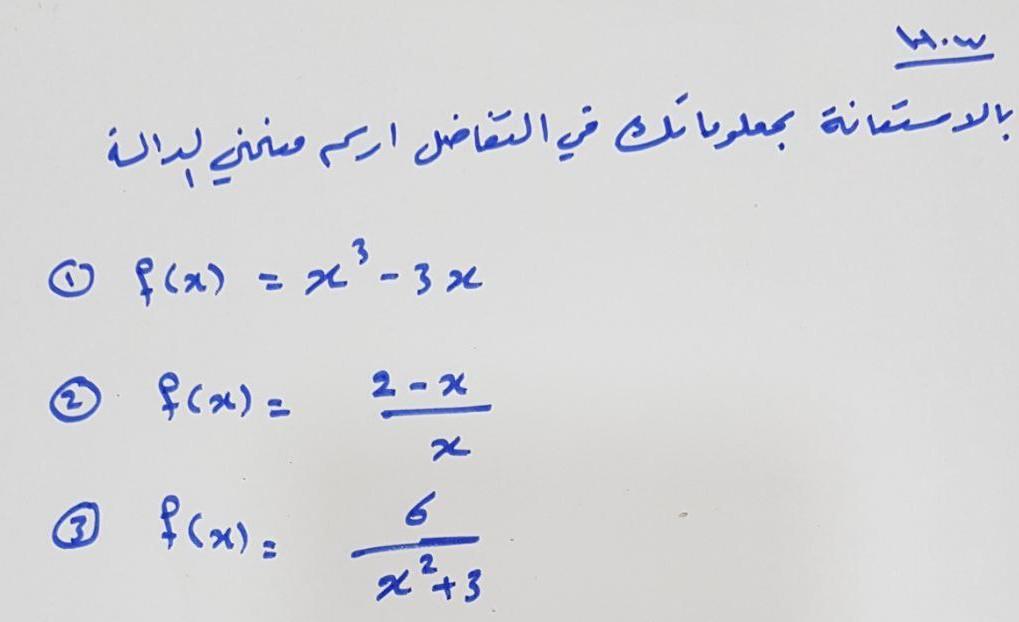 H.W
بالاستعانة بمعلوماتك في التفاضل ارسم منحني الدالة
① f(x) = x³ - 3x
② f(x) = (2 - x)/x
③ f(x) = 6/(x² + 3)